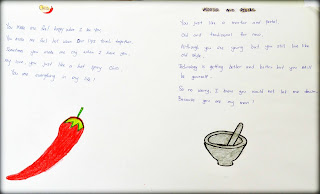 Chili
You make me feel happy when I see you.
You make me feel hot when our lips touch together.
Sometimes you make me cry when I have you.
My love, you just like a hot spicy Chili,
You are everything in my life!
Mortar and Pestle
You just like a mortar and pestle,
Old and traditional for now,
Although you are young but you still live like
old style.
Technology is getting better and better but you still
be yourself.
So no worry, I know you would not let me down
Because you are my mom!